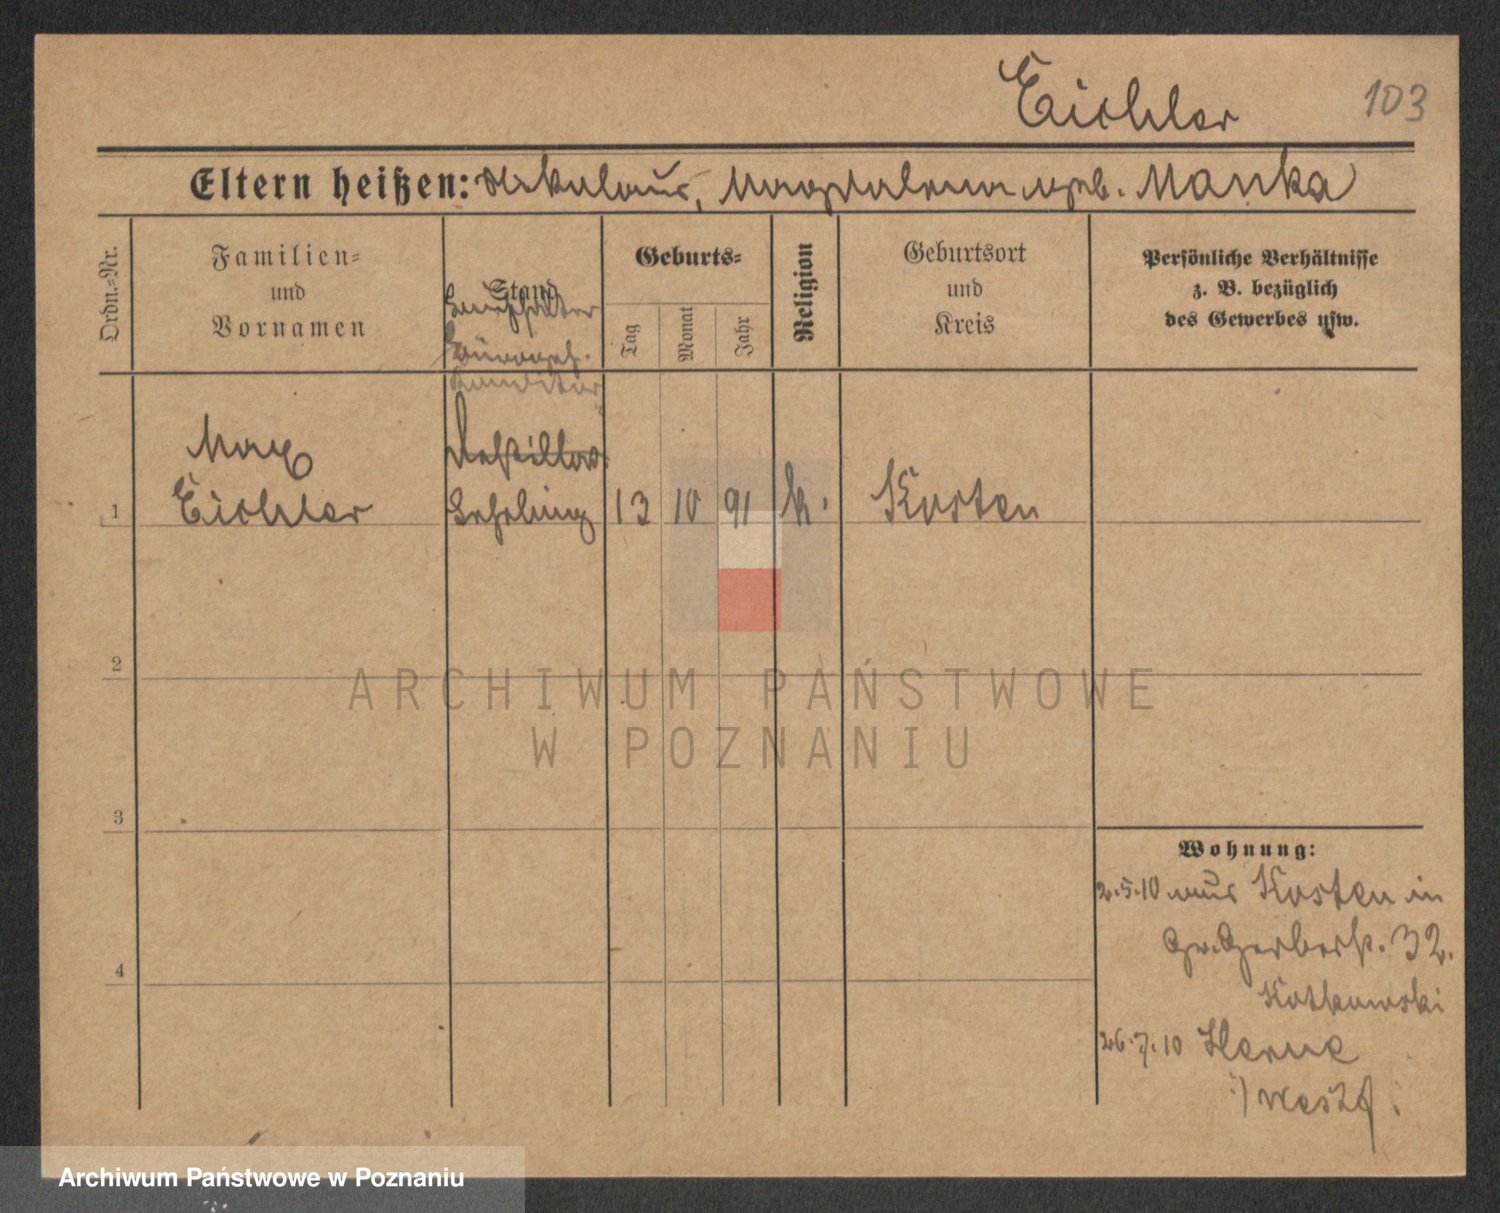 Eichler 103
Eltern heißen: Nikolaus, Magdalena geb. Manka
Ordn.-Nr.
Familien-
und
Vornamen
Stand
Geburts-
Tag
Monat
Jahr
Religion
Geburtsort
und
Kreis
Persönliche Verhältnisse
z. B. bezüglich
des Gewerbes usw.
Max
Destillat.
1 Eichler Lehrling 13 10 91 k. Kosten
2
3
4
Wohnung:
2.5.10 aus Kosten in
Gr. Gerberst. 32.
Kotkowski
26.7.10 Herne
i/Westf.
ARCHIWUM PAŃSTWOWE
W POZNANIU
Archiwum Państwowe w Poznaniu